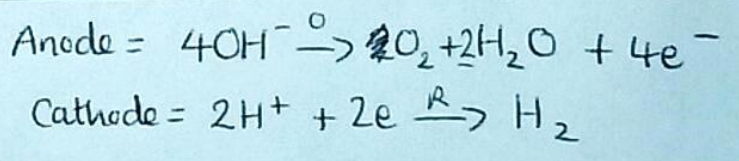 Anode = 4OH⁻ —O→ O₂ + 2H₂O + 4e⁻
Cathode = 2H+ + 2e —R→ H₂